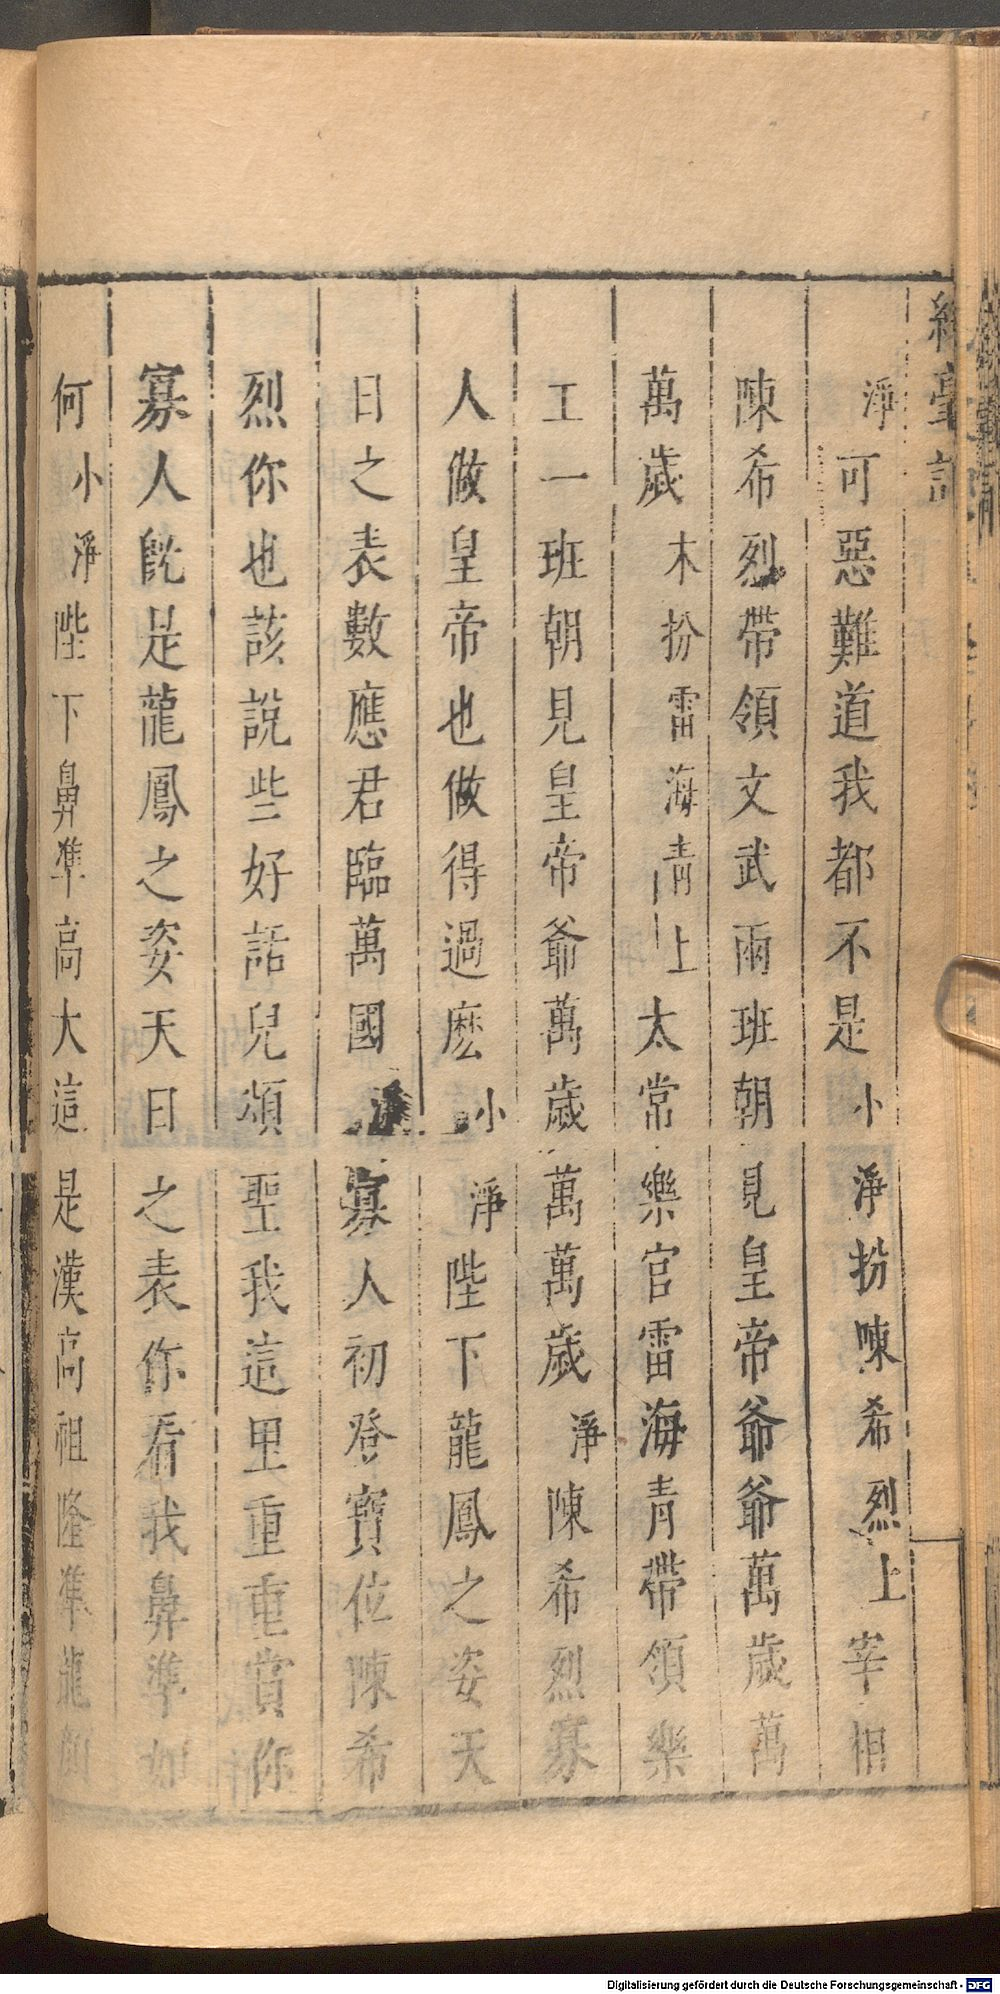 淨可惡難道我都不是小淨扮陳希烈上宰相
陳希烈帶領文武兩班朝見皇帝爺爺萬歲萬
萬歲末扮雷海青上太常樂官雷海青帶領樂
工一班朝見皇帝爺萬歲萬萬歲淨陳希烈寡
人做皇帝也做得過麽小淨陛下龍鳳之姿天
日之表數應君臨萬國淨寡人初登寶位陳希
烈你也該說些好話兒頌聖我這里重重賞你
寡人旣是龍鳳之姿天日之表你看我鼻準如
何小淨陛下鼻準高大這是漢高祖隆準龍顏
Digitalisierung gefördert durch die Deutsche Forschungsgemeinschaft - DFG